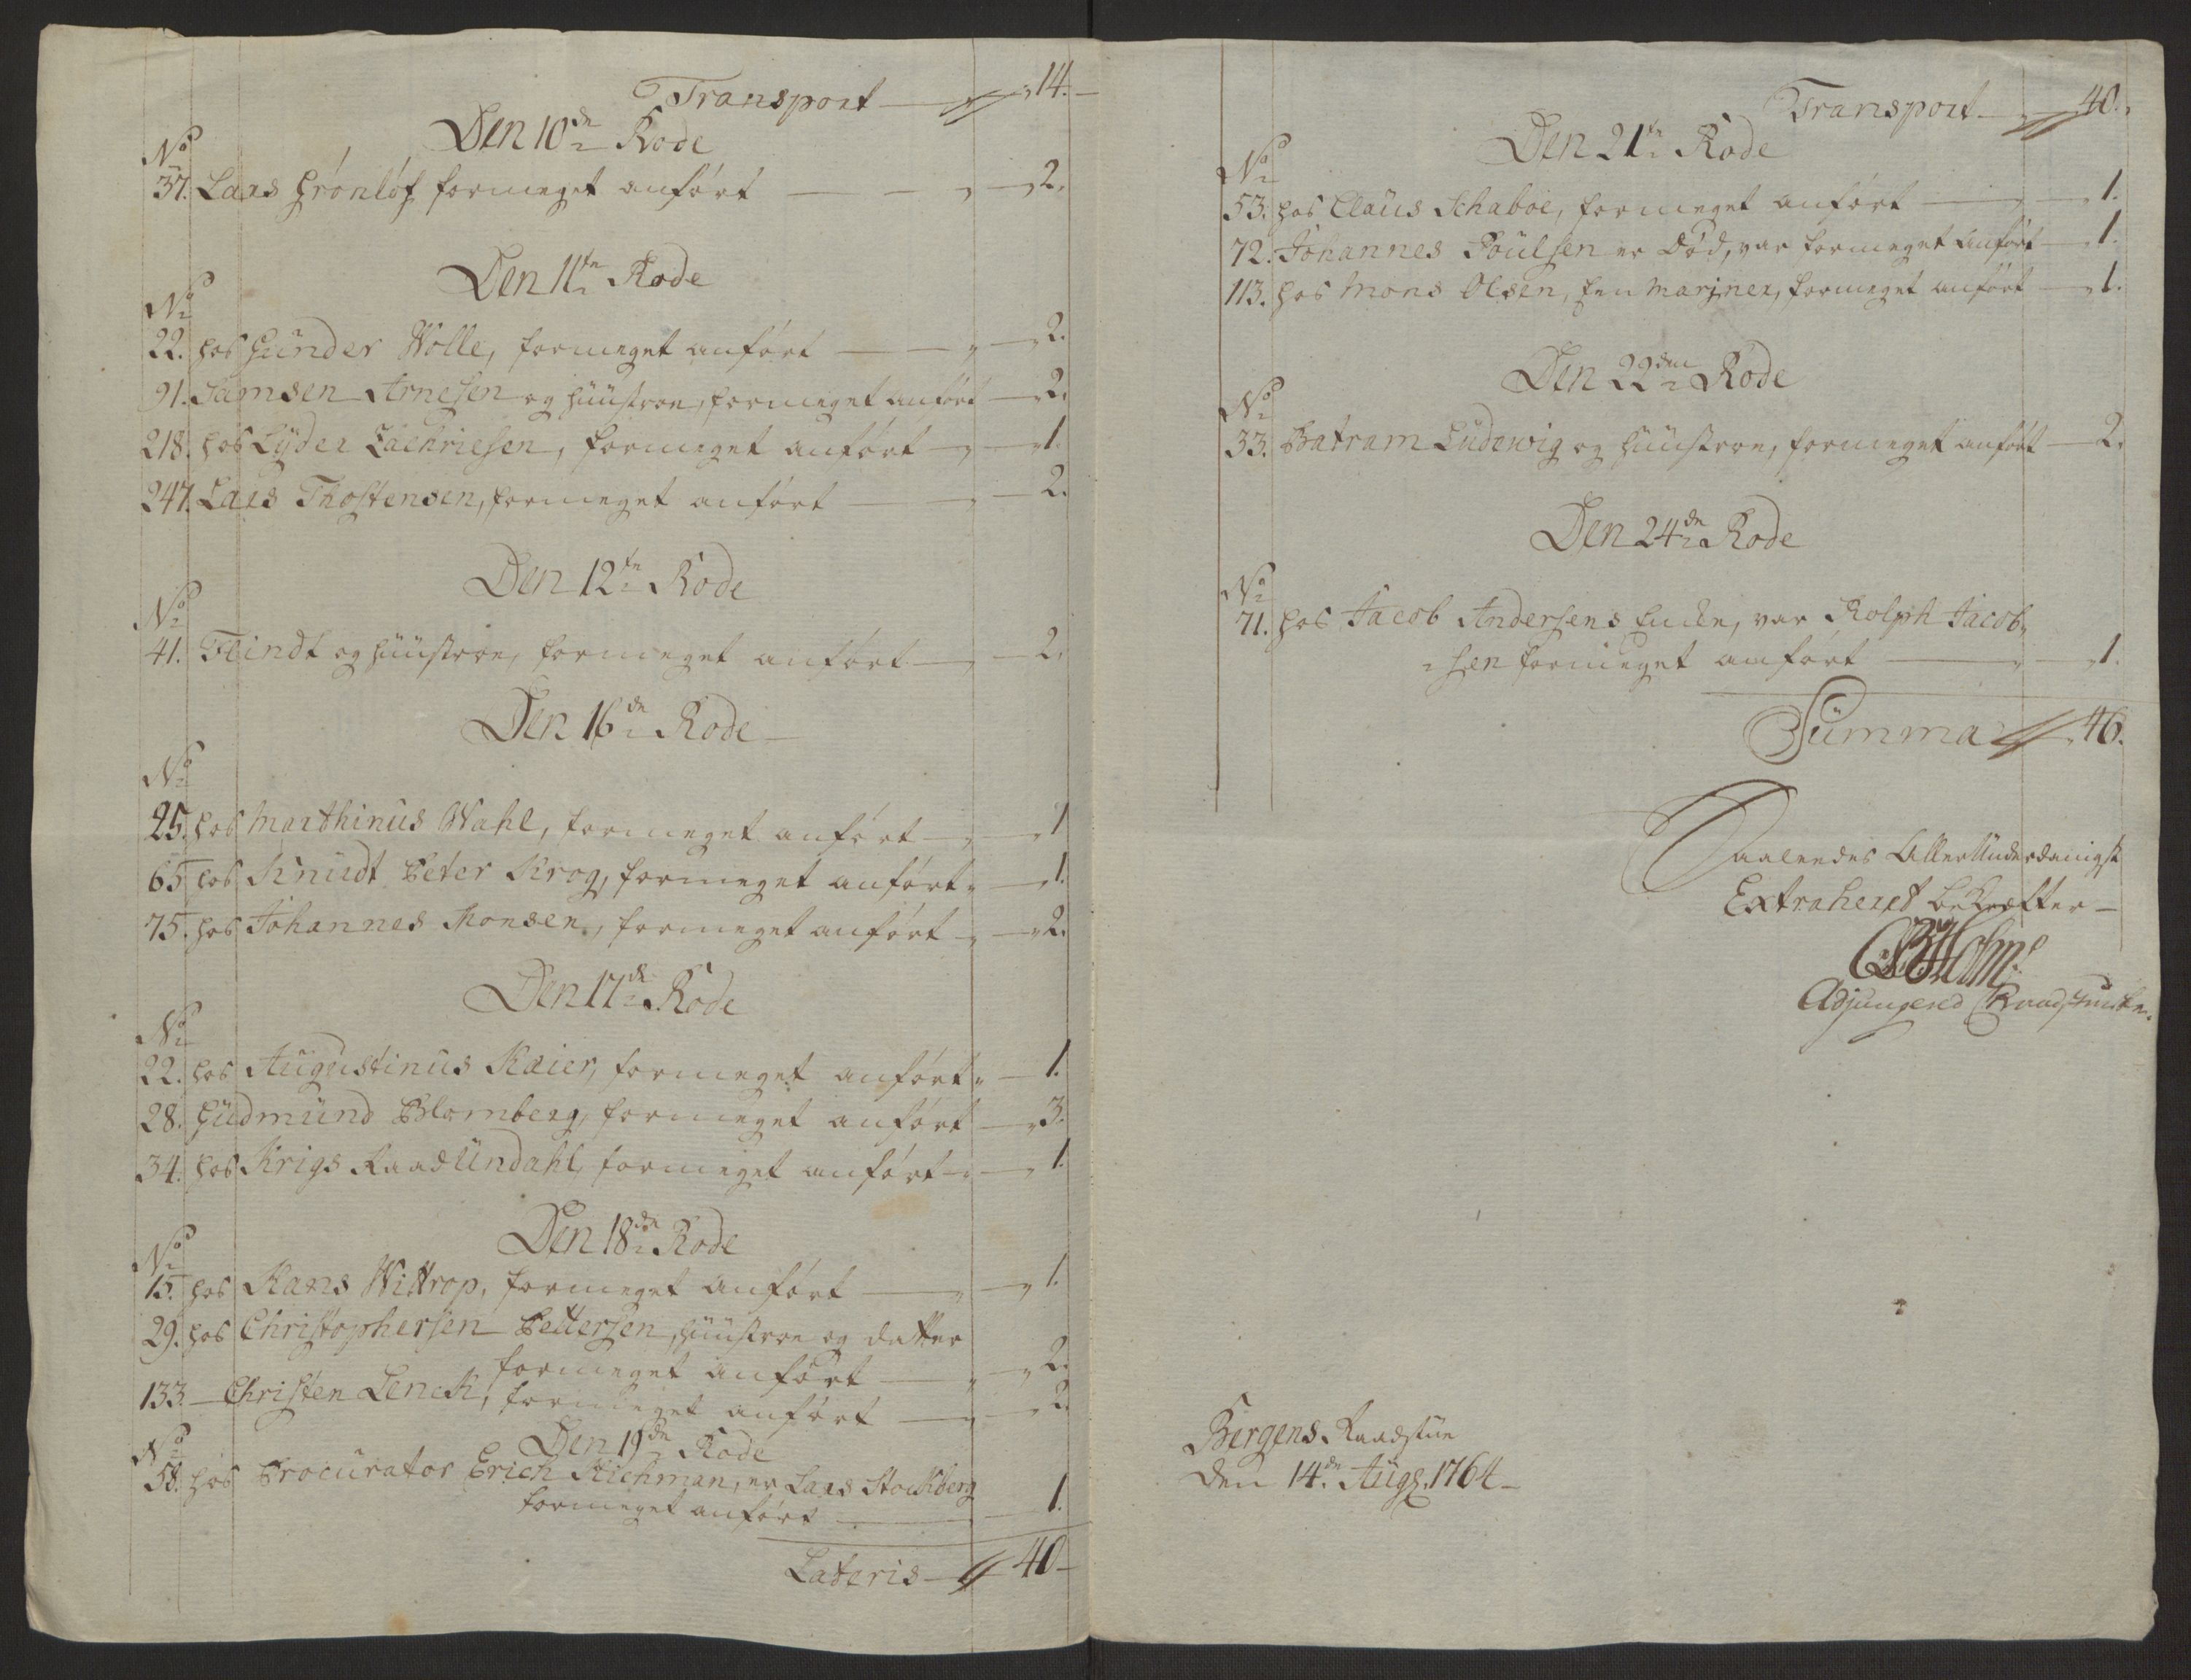 Transport — 14.
Den 10de Rode
No
37. Lars Grönlöf formeget anført — 2.
Den 11te Rode
No
22. hos Günder Wolle, formeget anført — 2.
91. Samsen Arnesen og hüüstroe, formeget anført — 2.
218. hos Lÿder Zachriesen, formeget anført — 1.
247. Lars Thostensen, formeget anført — 2.
Den 12te Rode
No
41. Flindt og hüüstroe, formeget anført — 2.
Den 16de Rode
No
25. hos Marthinus Wahl, formeget anført — 1
65 hos Knudt Peter Krog, formeget anført — 1.
75. hos Johannes Monsen, formeget anført — 2.
Den 17de Rode
No
22. hos Augustinus Kaier, formeget anført — 1.
28. Gudmund Blomberg, formeget anført — 3.
34. hos Krigs Raad Undahl, formeget anført — 1.
Den 18de Rode
No
15. hos Hans Wittrop, formeget anført — 1.
29. hos Christophersen Pettersen, hüüstroe og datter
formeget anført — 2.
133 — Christen Lenck, formeget anført — 2.
Den 19de Rode
No
58. hos Procurator Erich Richman, er Lars Stockberg
formeget anført — 1.
Lateris — 40 —
Transport — 40.
Den 21te Rode
No
53. hos Claus Schaboe, formeget anført — 1.
72. Johannes Poulsen er død, var formeget anført — 1.
113. hos Mons Olsen, en Mariner, formeget anført — 1.
Den 22den Rode
No
33. Batram Ludewig og hüüstroe, formeget anført — 2.
Den 24de Rode
No
71. hos Jacob Andersens Encke, var Rolph Jacob,,
sen formeget anført — 1.
Summa — 46.
Saaleedes Allerunderdanigst
Extraheret bekræfter —
Holm
Adjungered Raadstue
Bergens Raadstüe
den 14de Augs. 1764 —